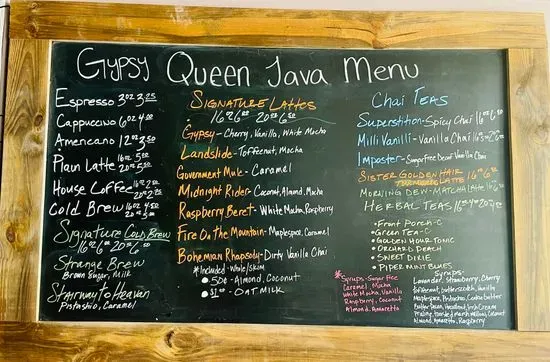 Gypsy Queen Java Menu
Espresso 3oz 3.25
Cappuccino 6oz 4.00
Americano 12oz 3.50
Plain Latte 16oz 5.00
20oz 5.50
House Coffee 16oz 2.50
20oz 2.75
Cold Brew 16oz 4.50
Signature Cold Brew
16oz 6.00 20oz 6.50
Strange Brew
Brown Sugar, Milk
Stairway to Heaven
Pistachio, Caramel
Signature Lattes
16oz 6.00 20oz 6.50
Gypsy - Cherry, Vanilla, White Mocha
Landslide - Toffeenut, Mocha
Government Mule - Caramel
Midnight Rider - Coconut, Almond, Mocha
Raspberry Beret - White Mocha, Raspberry
Fire On the Mountain - Maplespice, Caramel
Bohemian Rhapsody - Dirty Vanilla Chai
*Included - Whole/Skim
• .50¢ - Almond, Coconut
• $1.00 - Oat Milk
*Syrups - Sugar Free
Caramel, Mocha
White Mocha, Vanilla
Raspberry, Coconut
Almond, Amaretto
Chai Teas
Superstition - Spicy Chai 16oz 6.50
Milli Vanilli - Vanilla Chai
Imposter - Sugar Free Decaf Vanilla Chai
Sister Golden Hair
Morning Dew - Matcha Latte
Herbal Teas
• Front Porch - C
• Green Tea - C
• Golden Hour Tonic
• Orchard Peach
• Sweet Dixie
• Piper Mint Blues
Syrups
Lavender, Strawberry, Cherry
Toffeenut, Butterscotch, Vanilla
Maplespice, Pistachio, Cookie butter
Irish Cream
Praline, Toasted Marshmallow, Caramel
Almond, Amaretto, Raspberry